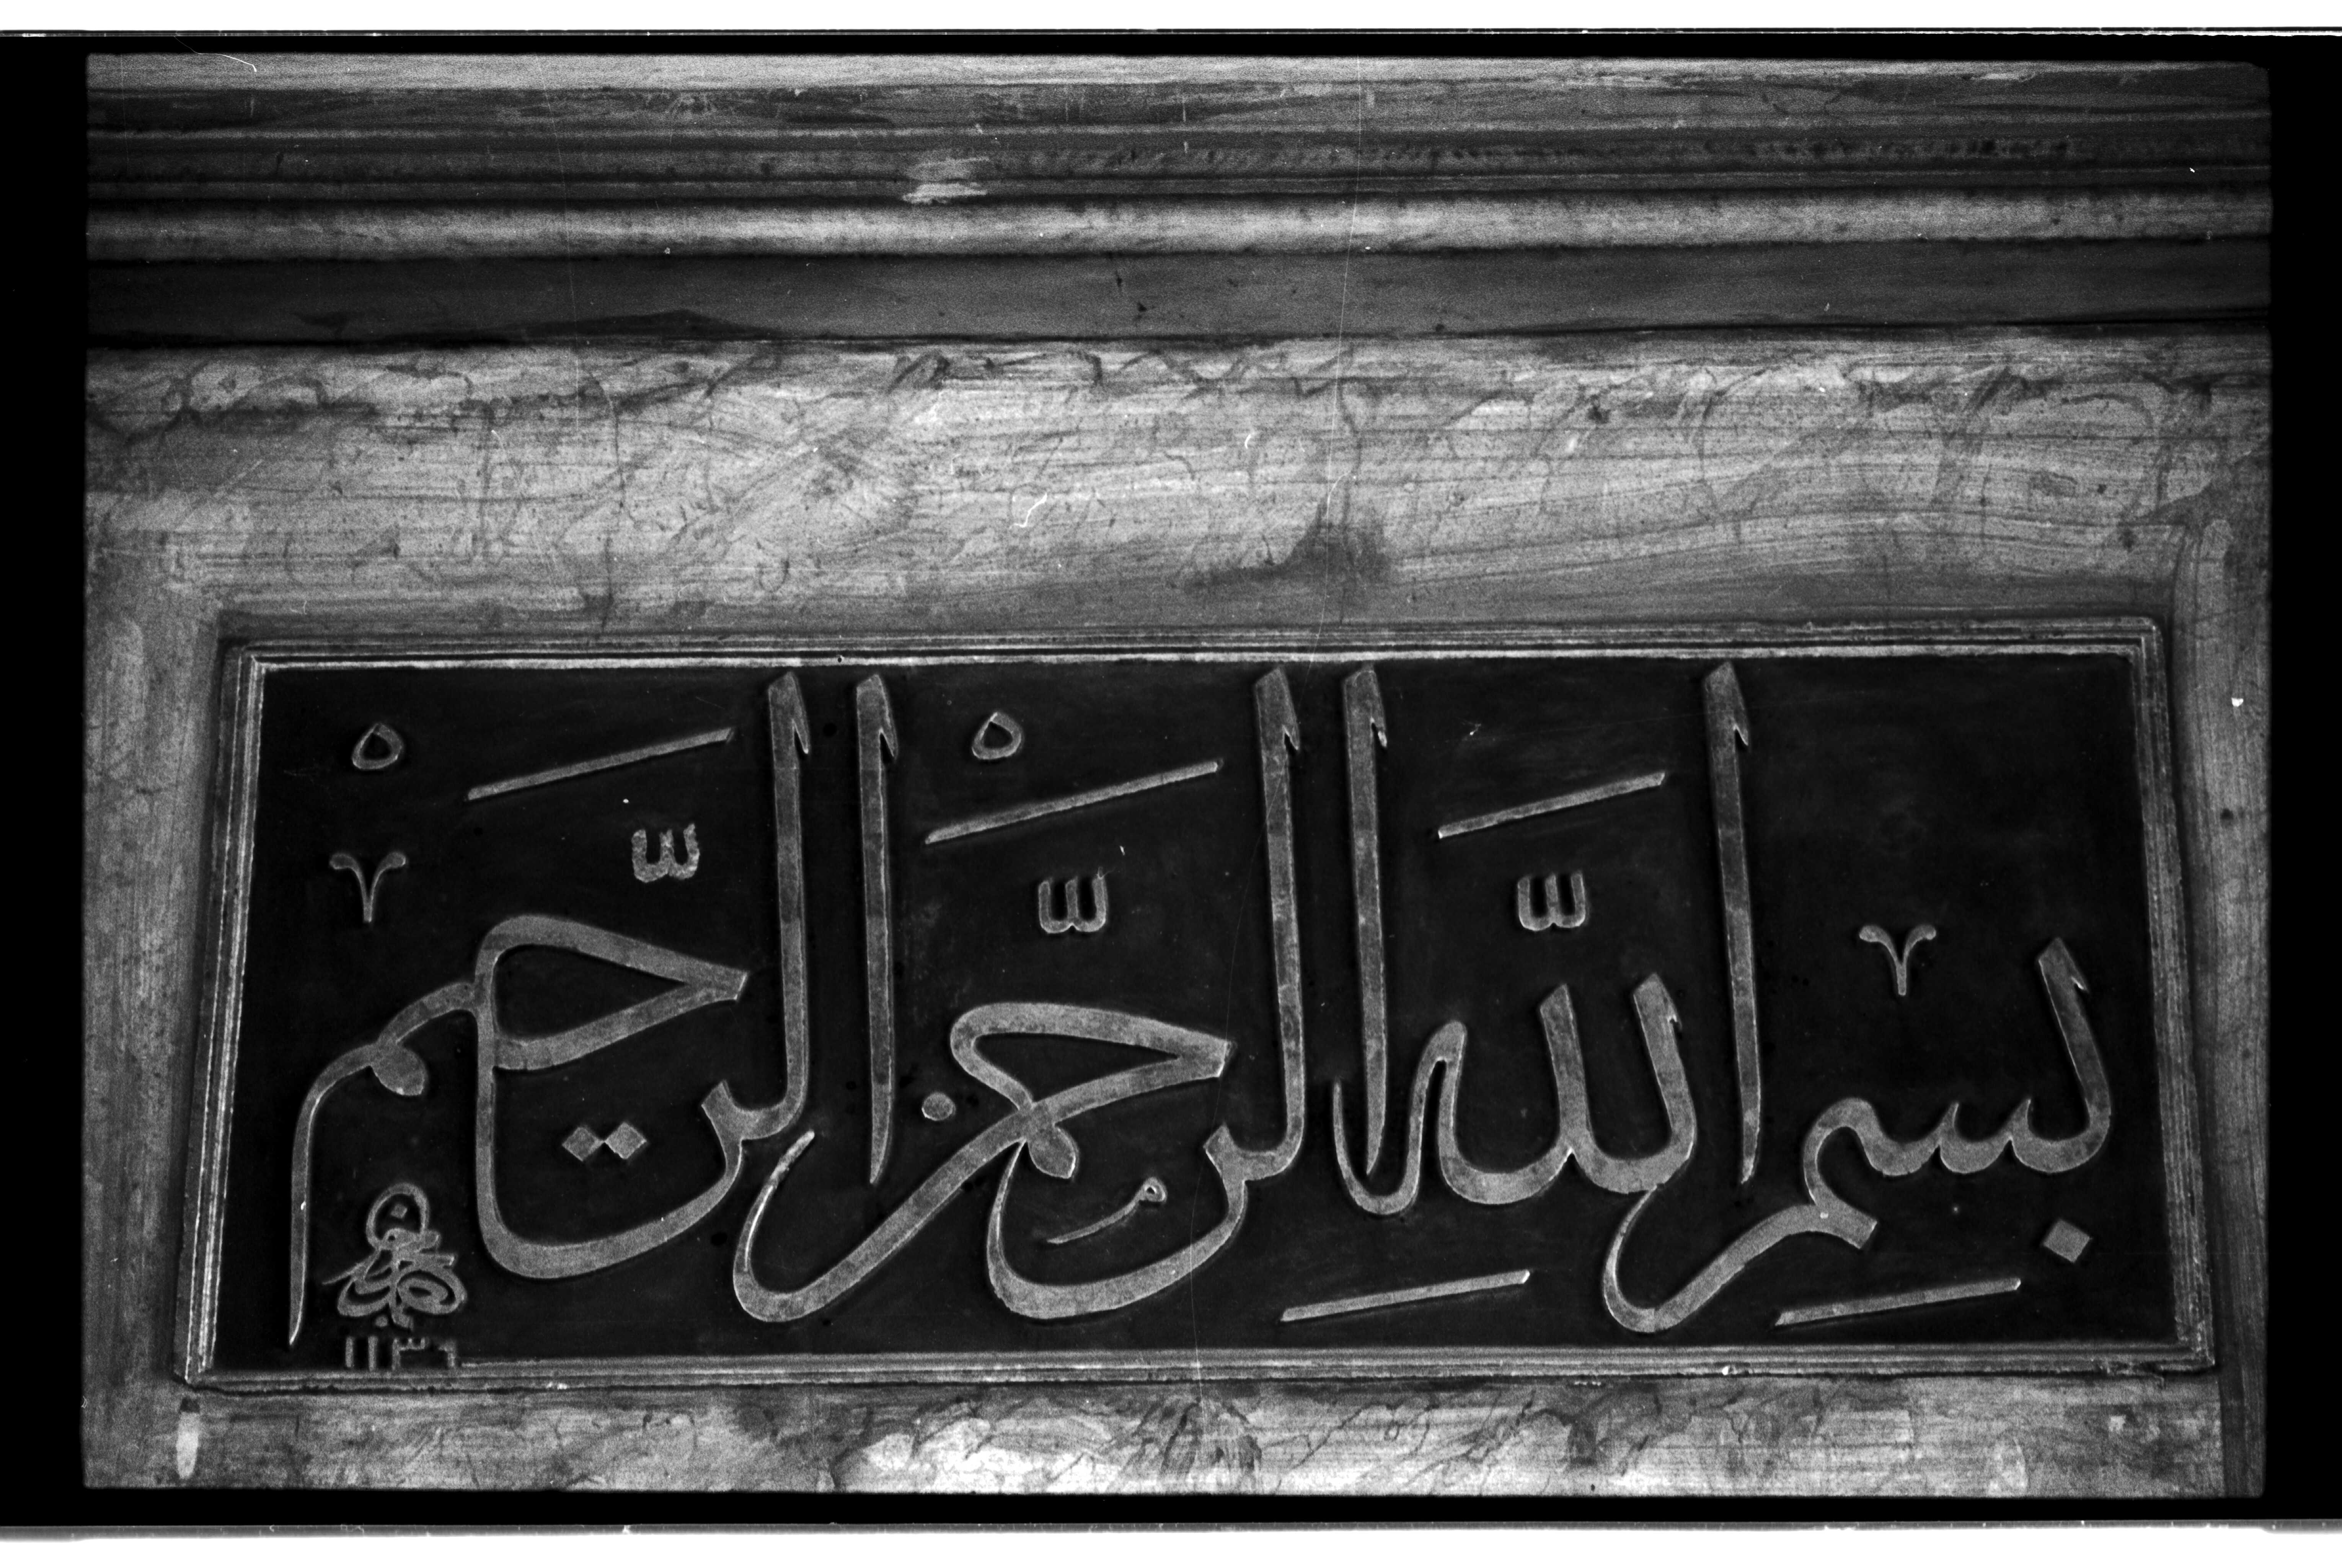 بسم الله الرحمن الرحيم
١١٣٦